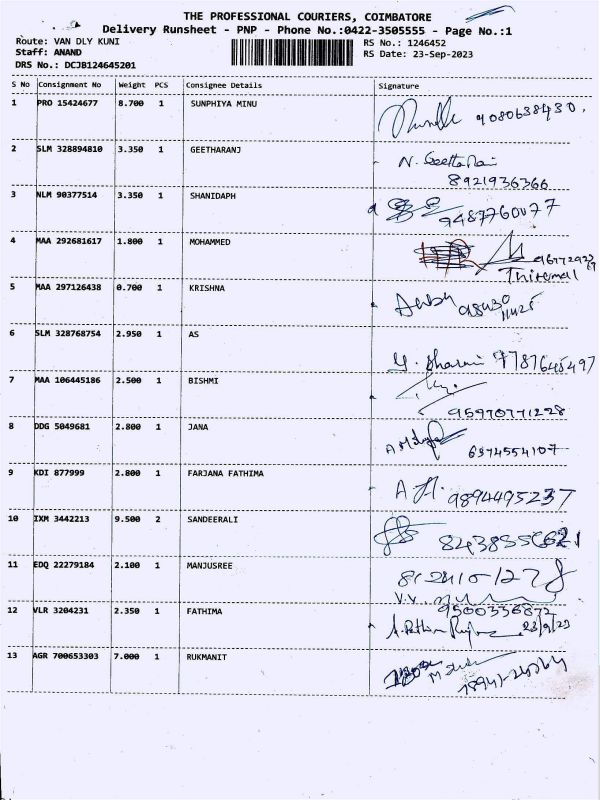 THE PROFESSIONAL COURIERS, COIMBATORE
Delivery Runsheet - PNP - Phone No.:0422-3505555 - Page No.:1
Route: VAN DLY KUNI
RS No.: 1246452
Staff: ANAND
RS Date: 23-Sep-2023
DRS No.: DCJB124645201
S No Consignment No Weight PCS Consignee Details Signature
1 PRO 15424677 8.700 1 SUNPHIYA MINU 9080638430.
2 SLM 328894810 3.350 1 GEETHARANJ N. Geetha Rani
8921936366
3 NLM 90377514 3.350 1 SHANIDAPH 9487760077
4 MAA 292681617 1.800 1 MOHAMMED
Thirumal
5 MAA 297126438 0.700 1 KRISHNA 98430
11425
6 SLM 328768754 2.950 1 AS 7787645497
7 MAA 106445186 2.500 1 BISHMI
95970771228
8 DDG 5049681 2.800 1 JANA 6374554107
9 KDI 877999 2.800 1 FARJANA FATHIMA 9894495237
10 IXM 3442213 9.500 2 SANDEERALI
11 EDQ 22279184 2.100 1 MANJUSREE
V.V.
12 VLR 3204231 2.350 1 FATHIMA 9500336872
23/9/23
13 AGR 700653303 7.000 1 RUKMANIT